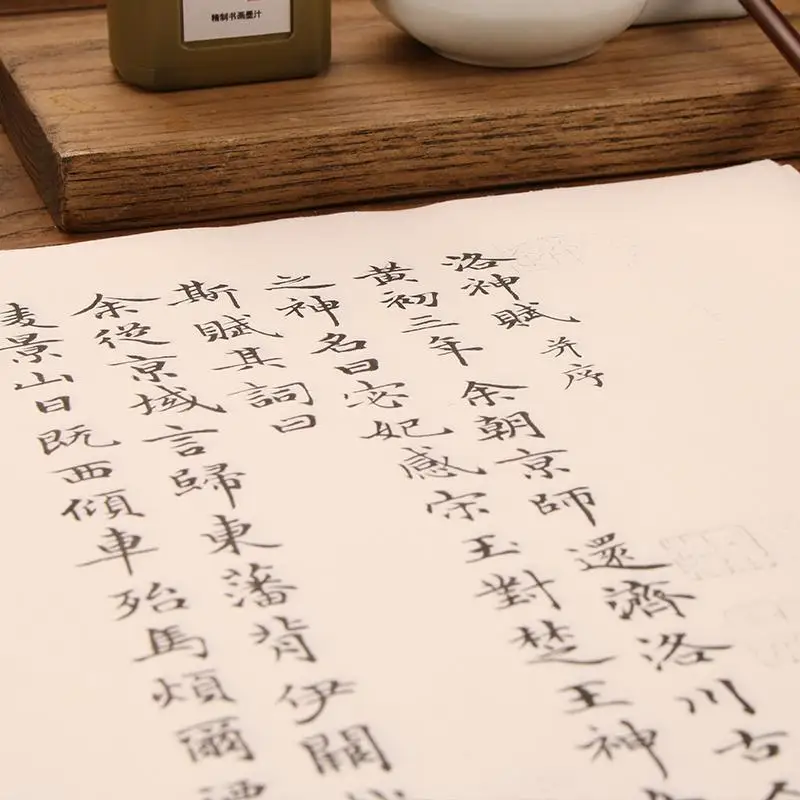 精制书画墨汁
洛神賦 并序
黄初三年余朝京師還濟洛川古
之神名曰宓妃感宋玉對楚王神
斯賦其詞曰
余從京域言歸東藩背伊闕
景山日既西傾車殆馬煩爾